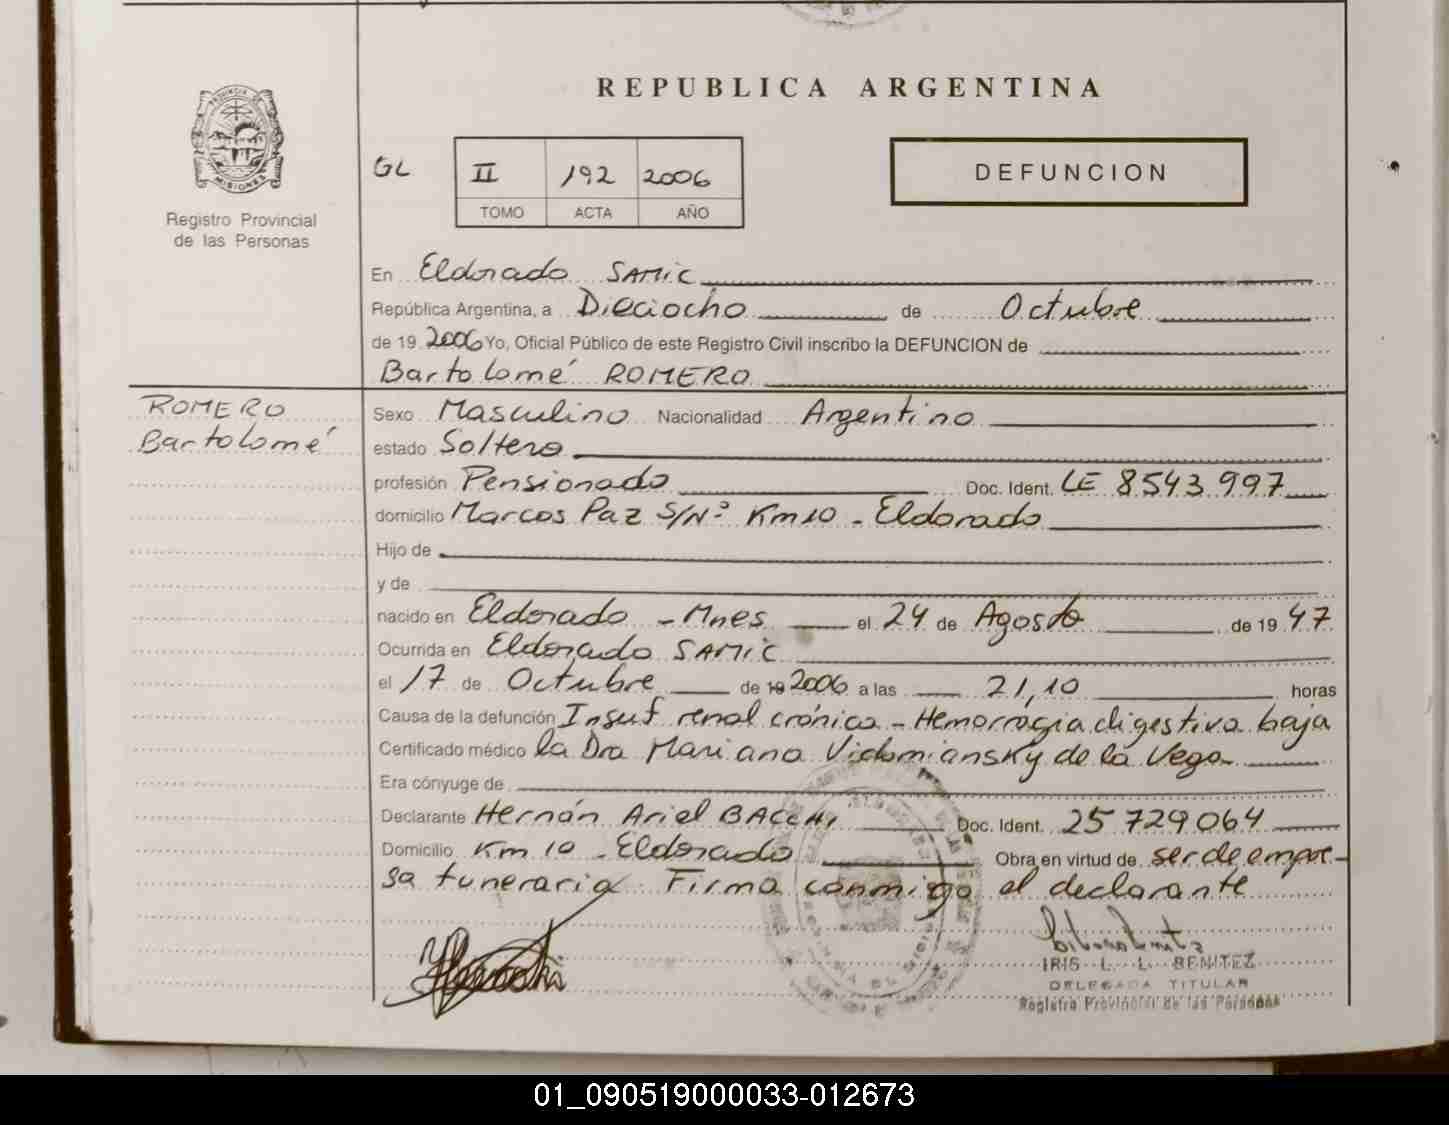 REPUBLICA ARGENTINA
PROVINCIA DE
MISIONES
Registro Provincial
de las Personas
GL II 192 2006
TOMO ACTA AÑO
DEFUNCION
En Eldorado SAMIC
República Argentina, a Dieciocho de Octubre
de 19 2006 Yo, Oficial Público de este Registro Civil inscribo la DEFUNCION de
Bartolomé ROMERO
ROMERO
Bartolomé
Sexo Masculino Nacionalidad Argentino
estado Soltero
profesión Pensionado Doc. Ident. LE 8543997
domicilio Marcos Paz S/Nº Km 10 - Eldorado
Hijo de
y de
nacido en Eldorado - Mnes el 24 de Agosto de 19 47
Ocurrida en Eldorado SAMIC
el 17 de Octubre de 19 2006 a las 21,10 horas
Causa de la defunción Insuf renal crónica - Hemorragia digestiva baja
Certificado médico la Dra Mariana Vidomiansky de la Vega
Era cónyuge de
Declarante Hernán Ariel BACCHI Doc. Ident. 25729064
Domicilio Km 10 - Eldorado Obra en virtud de ser de empre-
sa funeraria. Firma conmigo el declarante
IRIS L. L. BENITEZ
DELEGADA TITULAR
Registro Provincial de las Personas
01_090519000033-012673